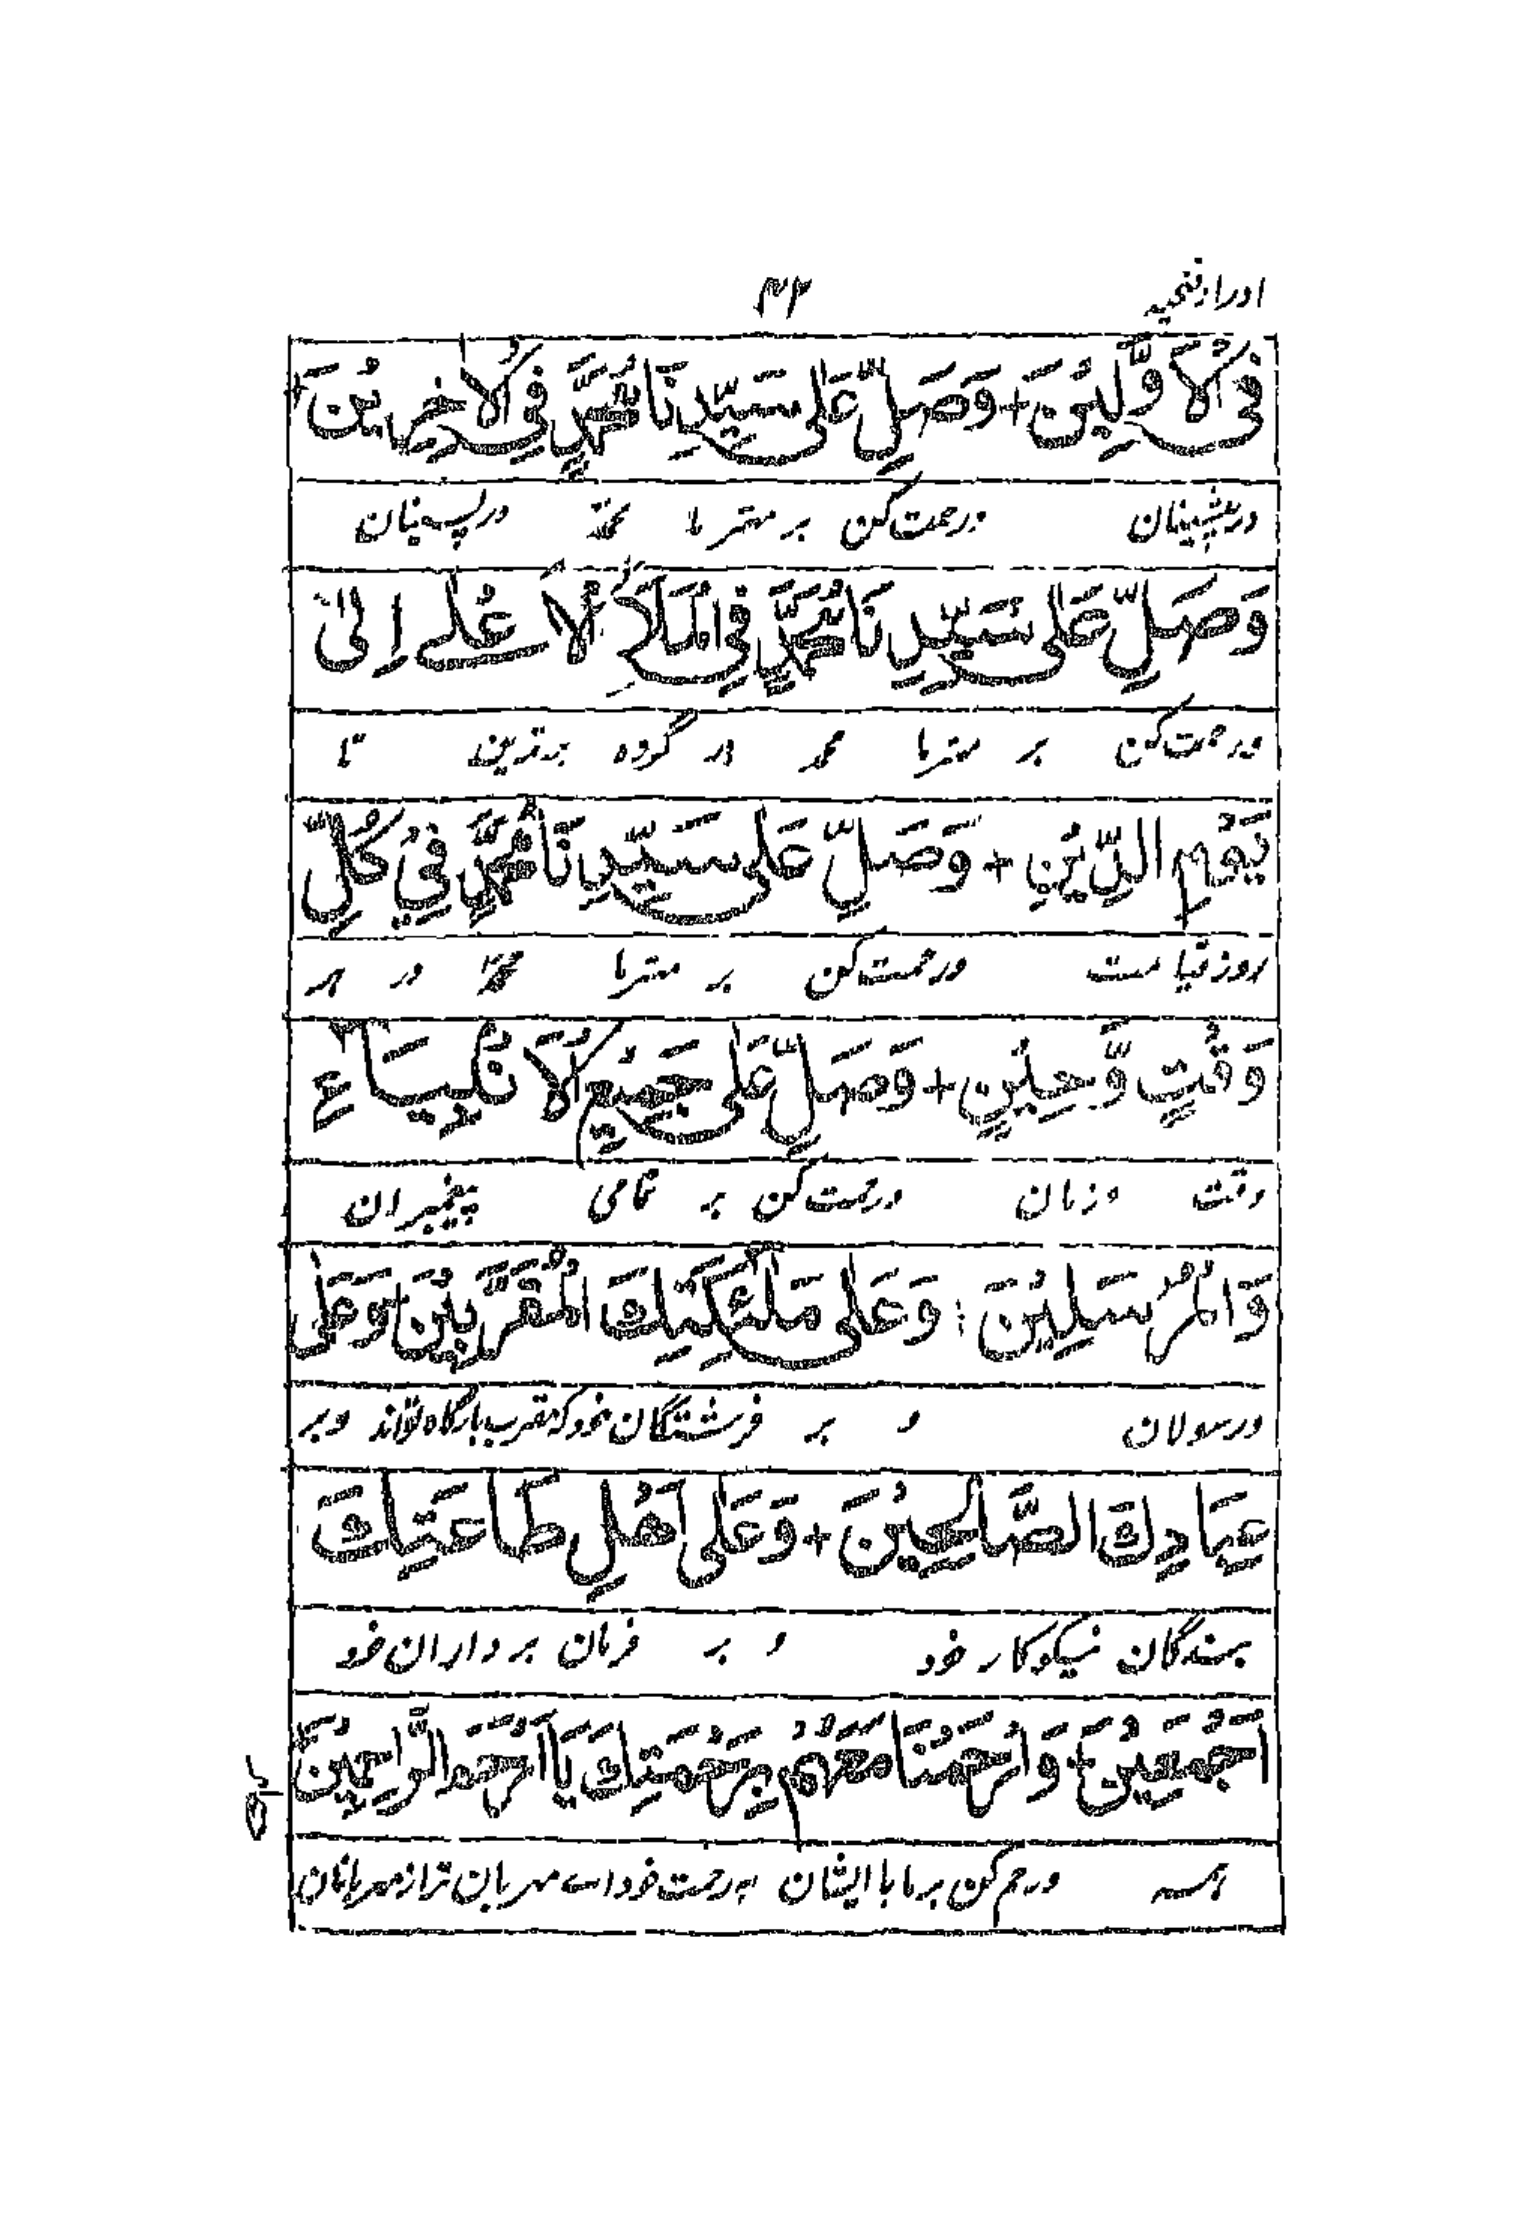 اوراد فتحیہ ۴۲
فِی الْاَوَّلِیْنَ + وَصَلِّ عَلٰی سَیِّدِنَا مُحَمَّدٍ فِی الْاٰخِرِیْنَ +
در پیشینان ورحمت کن بر مهتر ما محمدؐ در پسینان
وَصَلِّ عَلٰی سَیِّدِنَا مُحَمَّدٍ فِی الْمَلَاِ الْاَعْلٰے اِلیٰ
ورحمت کن بر مهتر ما محمد در گروه برترین تا
یَوْمِ الدِّیْنِ + وَصَلِّ عَلٰی سَیِّدِنَا مُحَمَّدٍ فِیْ کُلِّ
روز قیامت ورحمت کن بر مهتر ما محمدؐ در ہمہ
وَقْتٍ وَّحِیْنٍ + وَصَلِّ عَلٰی جَمِیْعِ الْاَنْۢبِیَآءِ
وقت وزمان ورحمت کن بر تمامی پیغمبران
وَالْمُرْسَلِیْنَ : وَعَلٰی مَلٰٓئِکَتِكَ الْمُقَرَّبِیْنَ + وَعَلٰی
ورسولان و بر فرشتگان خود که مقرب بارگاه تواند وبر
عِبَادِكَ الصَّالِحِیْنَ + وَعَلٰی اَهْلِ طَاعَتِكَ
بندگان نیکوکار خود و بر فرمان برداران خود
اَجْمَعِیْنَ + وَارْحَمْنَا مَعَهُمْ بِرَحْمَتِكَ یَا اَرْحَمَ الرَّاحِمِیْنَ
ہمہ ورحم کن برما با ایشان بہ رحمت خود اے مهربان تر از مهربانان